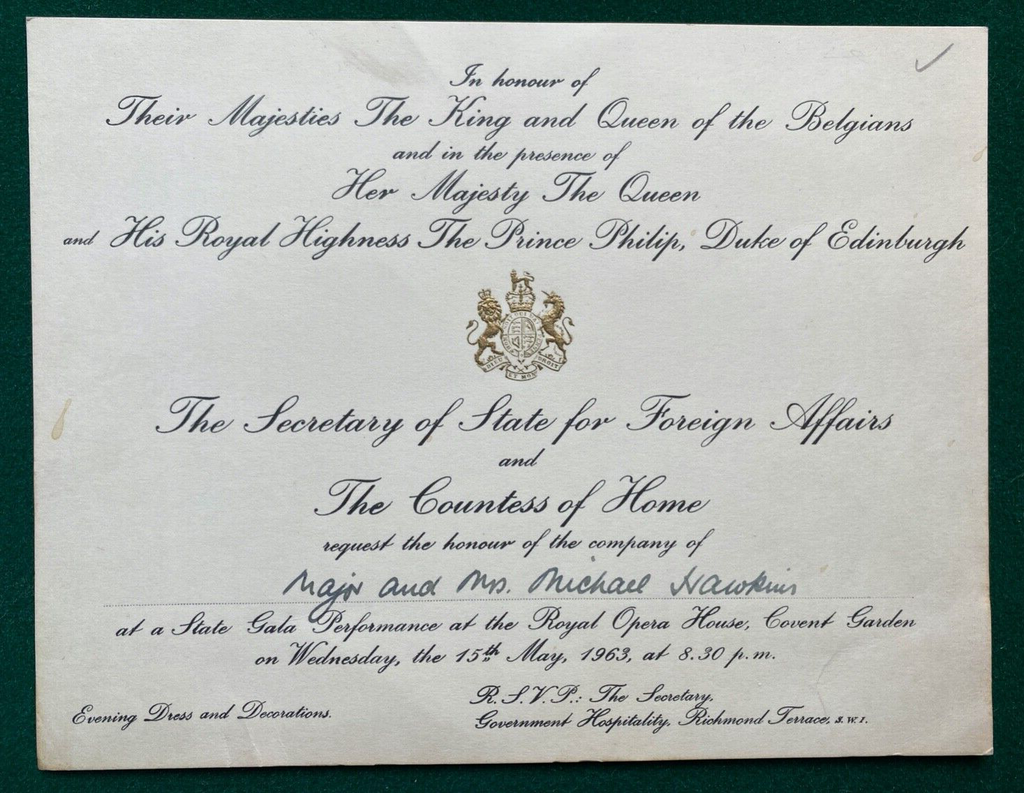 In honour of
Their Majesties The King and Queen of the Belgians
and in the presence of
Her Majesty The Queen
and His Royal Highness The Prince Philip, Duke of Edinburgh
The Secretary of State for Foreign Affairs
and
The Countess of Home
request the honour of the company of
Major and Mrs. Michael Hawkins
at a State Gala Performance at the Royal Opera House, Covent Garden
on Wednesday, the 15th May, 1963, at 8.30 p.m.
R.S.V.P.: The Secretary,
Evening Dress and Decorations.
Government Hospitality, Richmond Terrace, S.W.1.